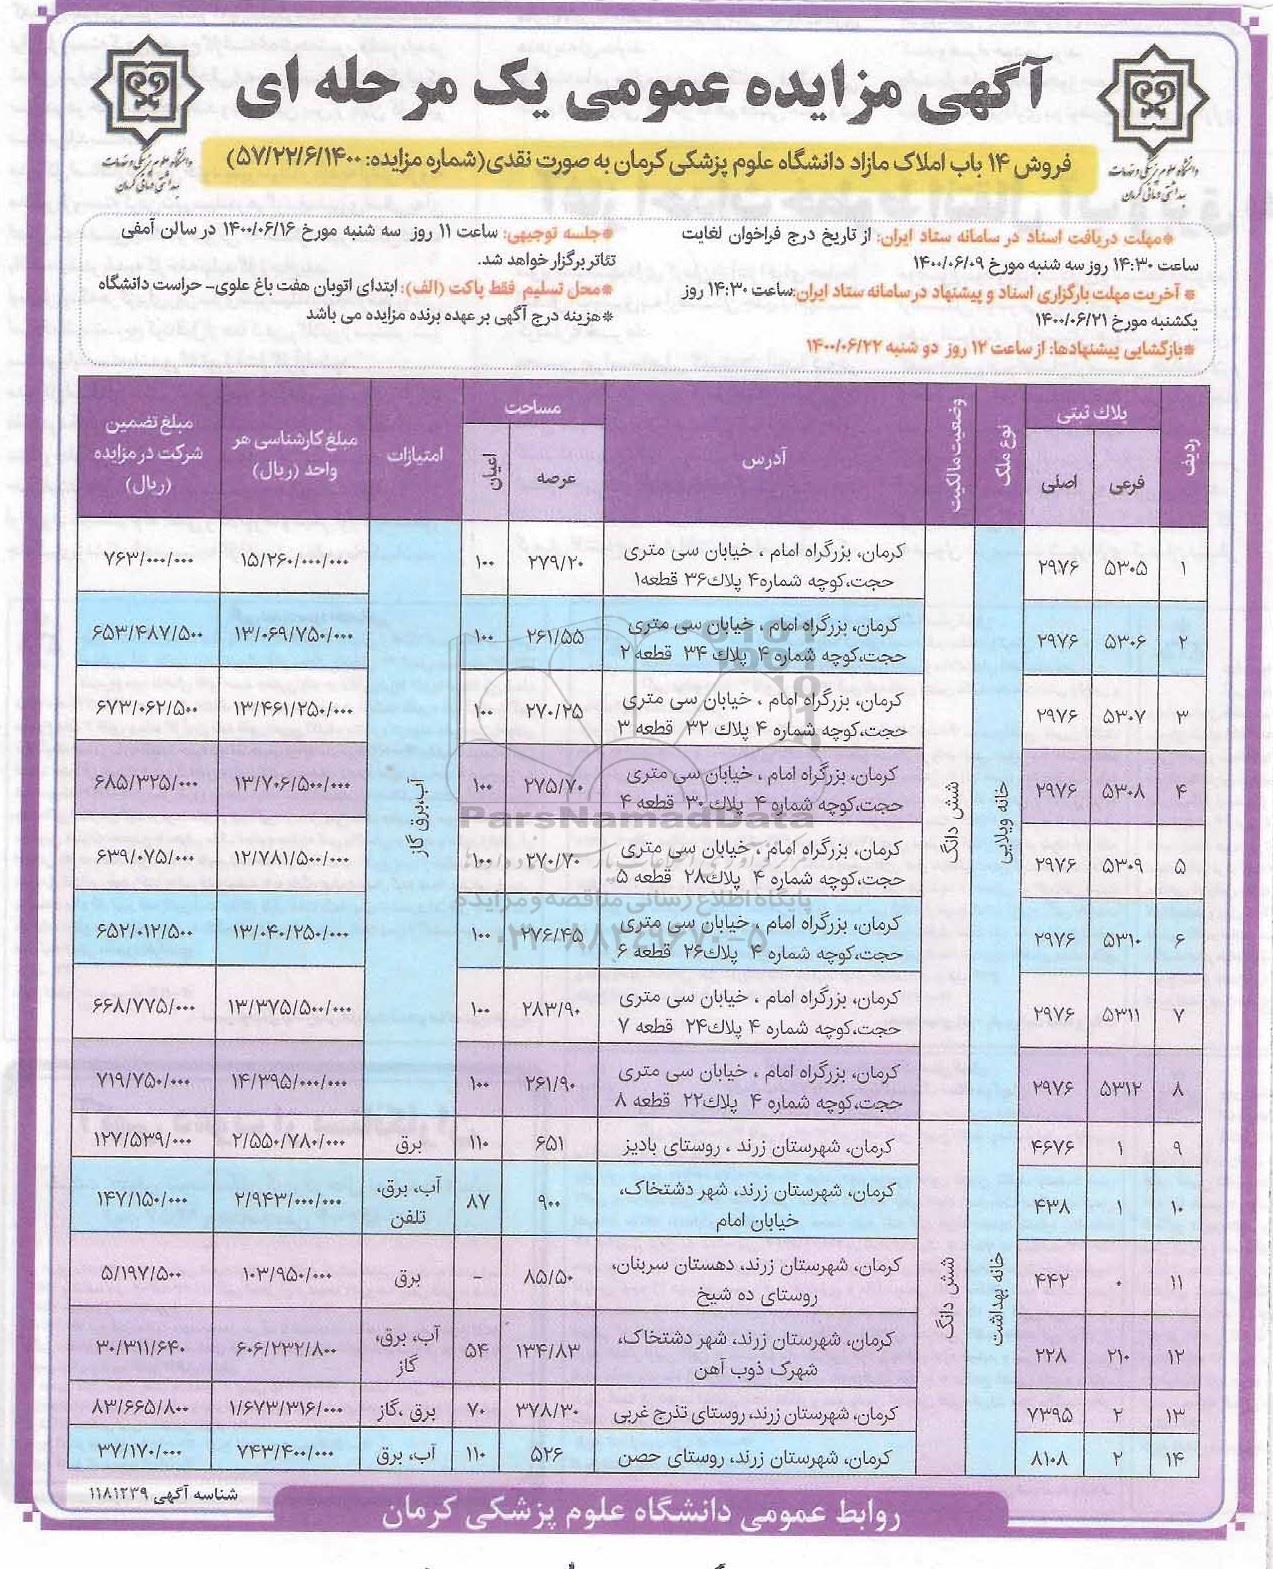 آگهی مزایده عمومی یک مرحله ای
فروش ۱۴ باب املاک مازاد دانشگاه علوم پزشکی کرمان به صورت نقدی(شماره مزایده: ۵۷/۲۲/۶/۱۴۰۰)
دانشگاه علوم پزشکی و خدمات
بهداشتی درمانی کرمان
دانشگاه علوم پزشکی و خدمات
بهداشتی درمانی کرمان
*مهلت دریافت اسناد در سامانه ستاد ایران: از تاریخ درج فراخوان لغایت
ساعت ۱۴:۳۰ روز سه شنبه مورخ ۱۴۰۰/۰۶/۰۹
* آخریت مهلت بارگزاری اسناد و پیشنهاد در سامانه ستاد ایران:ساعت ۱۴:۳۰ روز
یکشنبه مورخ ۱۴۰۰/۰۶/۲۱
*بازگشایی پیشنهادها: از ساعت ۱۲ روز دو شنبه ۱۴۰۰/۰۶/۲۲
*جلسه توجیهی: ساعت ۱۱ روز سه شنبه مورخ ۱۴۰۰/۰۶/۱۶ در سالن آمفی
تئاتر برگزار خواهد شد.
*محل تسلیم فقط پاکت (الف): ابتدای اتوبان هفت باغ علوی- حراست دانشگاه
*هزینه درج آگهی بر عهده برنده مزایده می باشد
ردیف پلاک ثبتی نوع ملک وضعیت مالکیت آدرس مساحت امتیازات مبلغ کارشناسی هر واحد (ریال) مبلغ تضمین شرکت در مزایده (ریال)
فرعی اصلی عرصه اعیان
خانه ویلایی شش دانگ آب،برق گاز
۱ ۵۳۰۵ ۲۹۷۶ کرمان، بزرگراه امام ، خیابان سی متری ۲۷۹/۲۰ ۱۰۰ ۱۵/۲۶۰/۰۰۰/۰۰۰ ۷۶۳/۰۰۰/۰۰۰
حجت،کوچه شماره۴ پلاک۳۶ قطعه۱
۲ ۵۳۰۶ ۲۹۷۶ کرمان، بزرگراه امام ، خیابان سی متری ۲۶۱/۵۵ ۱۰۰ ۱۳/۰۶۹/۷۵۰/۰۰۰ ۶۵۳/۴۸۷/۵۰۰
حجت،کوچه شماره ۴ پلاک ۳۴ قطعه ۲
۳ ۵۳۰۷ ۲۹۷۶ کرمان، بزرگراه امام ، خیابان سی متری ۲۷۰/۲۵ ۱۰۰ ۱۳/۴۶۱/۲۵۰/۰۰۰ ۶۷۳/۰۶۲/۵۰۰
حجت،کوچه شماره ۴ پلاک ۳۲ قطعه ۳
۴ ۵۳۰۸ ۲۹۷۶ کرمان، بزرگراه امام ، خیابان سی متری ۲۷۵/۷۰ ۱۰۰ ۱۳/۷۰۶/۵۰۰/۰۰۰ ۶۸۵/۳۲۵/۰۰۰
حجت،کوچه شماره ۴ پلاک ۳۰ قطعه ۴
۵ ۵۳۰۹ ۲۹۷۶ کرمان، بزرگراه امام ، خیابان سی متری ۲۷۰/۷۰ ۱۰۰ ۱۲/۷۸۱/۵۰۰/۰۰۰ ۶۳۹/۰۷۵/۰۰۰
حجت،کوچه شماره ۴ پلاک۲۸ قطعه ۵
۶ ۵۳۱۰ ۲۹۷۶ کرمان، بزرگراه امام ، خیابان سی متری ۲۷۶/۴۵ ۱۰۰ ۱۳/۰۴۰/۲۵۰/۰۰۰ ۶۵۲/۰۱۲/۵۰۰
حجت،کوچه شماره ۴ پلاک۲۶ قطعه ۶
۷ ۵۳۱۱ ۲۹۷۶ کرمان، بزرگراه امام ، خیابان سی متری ۲۸۳/۹۰ ۱۰۰ ۱۳/۳۷۵/۵۰۰/۰۰۰ ۶۶۸/۷۷۵/۰۰۰
حجت،کوچه شماره ۴ پلاک۲۴ قطعه ۷
۸ ۵۳۱۲ ۲۹۷۶ کرمان، بزرگراه امام ، خیابان سی متری ۲۶۱/۹۰ ۱۰۰ ۱۴/۳۹۵/۰۰۰/۰۰۰ ۷۱۹/۷۵۰/۰۰۰
حجت،کوچه شماره ۴ پلاک۲۲ قطعه ۸
خانه بهداشت شش دانگ
۹ ۱ ۴۶۷۶ کرمان، شهرستان زرند ، روستای بادیز ۶۵۱ ۱۱۰ برق ۲/۵۵۰/۷۸۰/۰۰۰ ۱۲۷/۵۳۹/۰۰۰
۱۰ ۱ ۴۳۸ کرمان، شهرستان زرند، شهر دشتخاک، خیابان امام ۹۰۰ ۸۷ آب، برق، تلفن ۲/۹۴۳/۰۰۰/۰۰۰ ۱۴۷/۱۵۰/۰۰۰
۱۱ ۰ ۴۴۲ کرمان، شهرستان زرند، دهستان سربنان، روستای ده شیخ ۸۵/۵۰ - برق ۱۰۳/۹۵۰/۰۰۰ ۵/۱۹۷/۵۰۰
۱۲ ۲۱۰ ۲۲۸ کرمان، شهرستان زرند، شهر دشتخاک، شهرک ذوب آهن ۱۳۴/۸۳ ۵۴ آب، برق، گاز ۶۰۶/۲۳۲/۸۰۰ ۳۰/۳۱۱/۶۴۰
۱۳ ۲ ۷۳۹۵ کرمان، شهرستان زرند، روستای تذرج غربی ۳۷۸/۳۰ ۷۰ برق ،گاز ۱/۶۷۳/۳۱۶/۰۰۰ ۸۳/۶۶۵/۸۰۰
۱۴ ۲ ۸۱۰۸ کرمان، شهرستان زرند، روستای حصن ۵۲۶ ۱۱۰ آب، برق ۷۴۳/۴۰۰/۰۰۰ ۳۷/۱۷۰/۰۰۰
ParsNamadData
پایگاه اطلاع رسانی مناقصه و مزایده
شناسه آگهی ۱۱۸۱۲۳۹
روابط عمومی دانشگاه علوم پزشکی کرمان